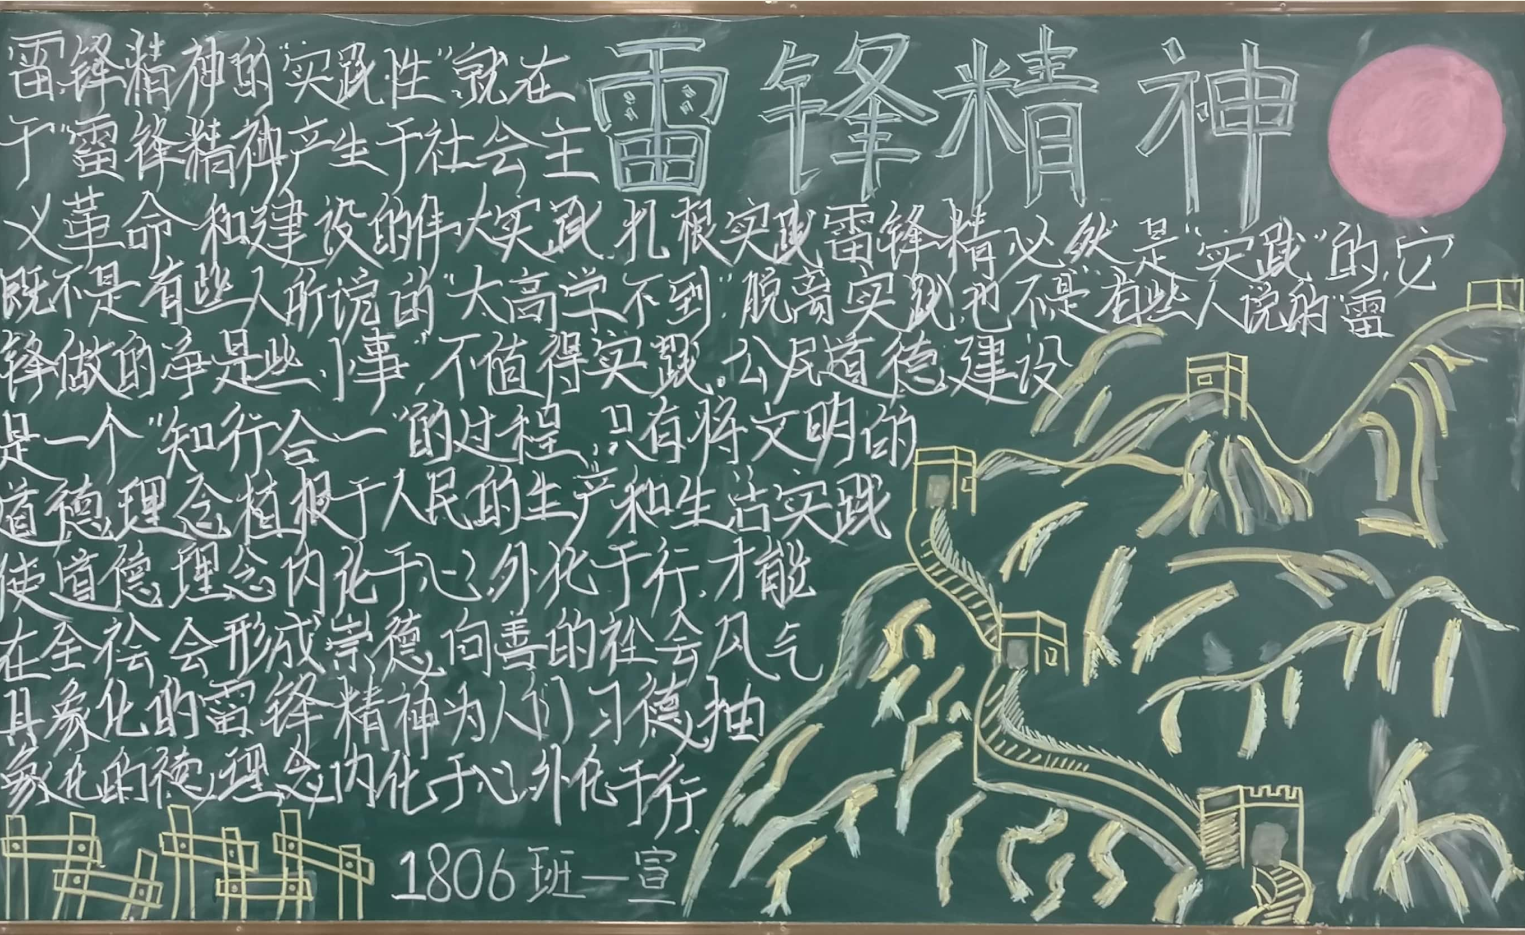 雷锋精神
雷锋精神的"实践性"就在
于"雷锋精神产生于社会主
义革命和建设的伟大实践,扎根实践雷锋精必然是"实践"的,它
既不是有些人所说的"太高学不到"脱离实践,也不是"有些人说的"雷
锋做的净是些小事",不值得实践,公民道德建设
是一个"知行合一"的过程,只有将文明的
道德理念植根于人民的生产和生活实践
使道德理念内化于心,外化于行,才能
在全社会形成崇德向善的社会风气
具象化的雷锋精神为人们习德抽
象化的德理念内化于心外化于行.
1806班一宣